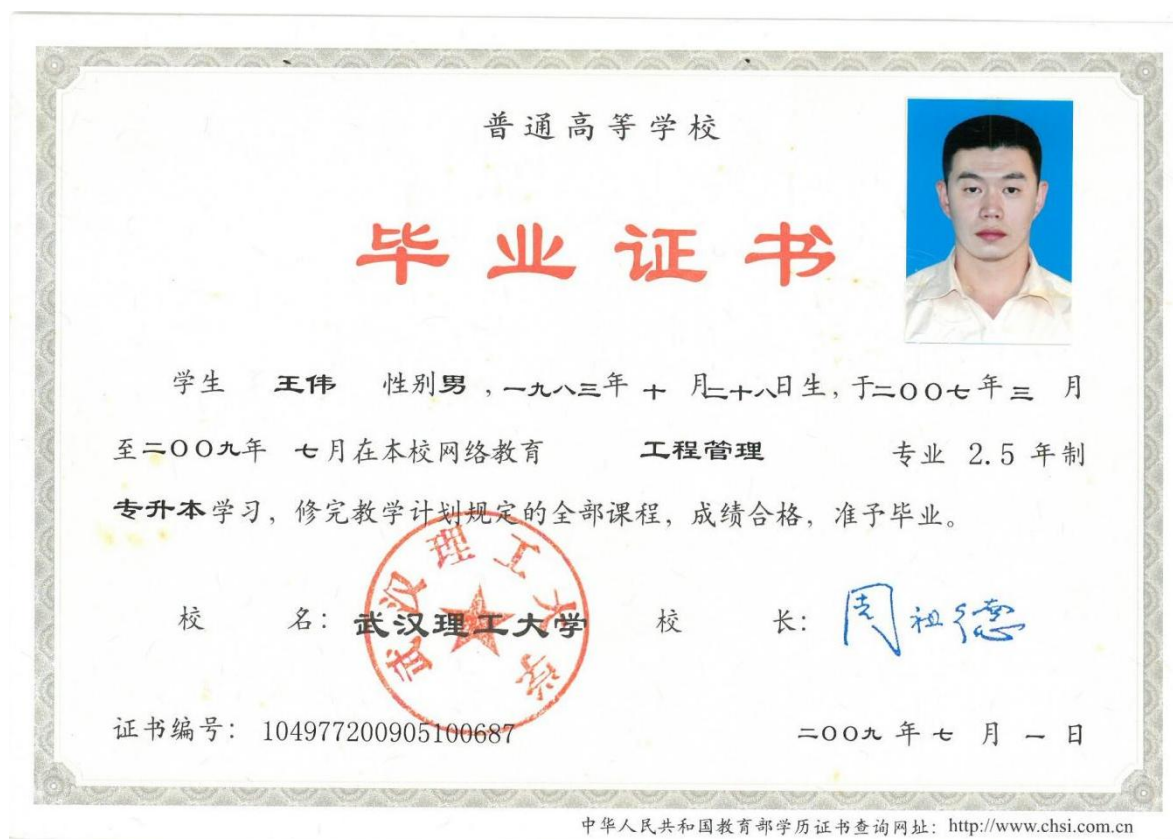 普通高等学校
毕业证书
学生 王伟 性别男，一九八三年 十 月二十八日生，于二〇〇七年 三 月
至二〇〇九年 七月在本校网络教育 工程管理 专业 2.5 年制
专升本学习，修完教学计划规定的全部课程，成绩合格，准予毕业。
校 名：武汉理工大学 校 长：周祖德
武汉理工大学
证书编号：104977200905100687 二〇〇九 年 七 月 一 日
中华人民共和国教育部学历证书查询网址：http://www.chsi.com.cn